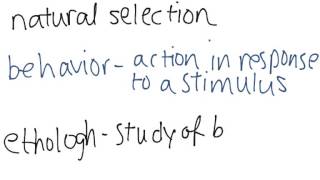 natural selection
behavior - action in response
to a stimulus
ethologh - study of b